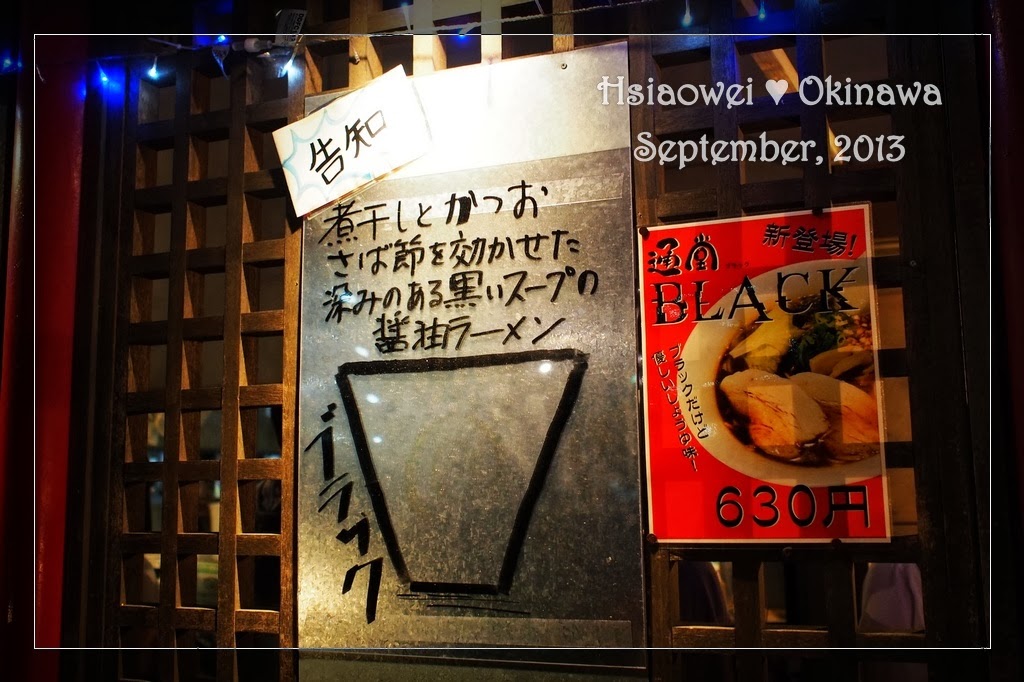 Hsiaowei ♥ Okinawa
September, 2013
告知
煮干しとかつお
さば節を効かせた
深みのある黒いスープの
醤油ラーメン
ブラック
通堂
新登場!
BLACK
ブラックだけど
優しいしょうゆ味ー
630円